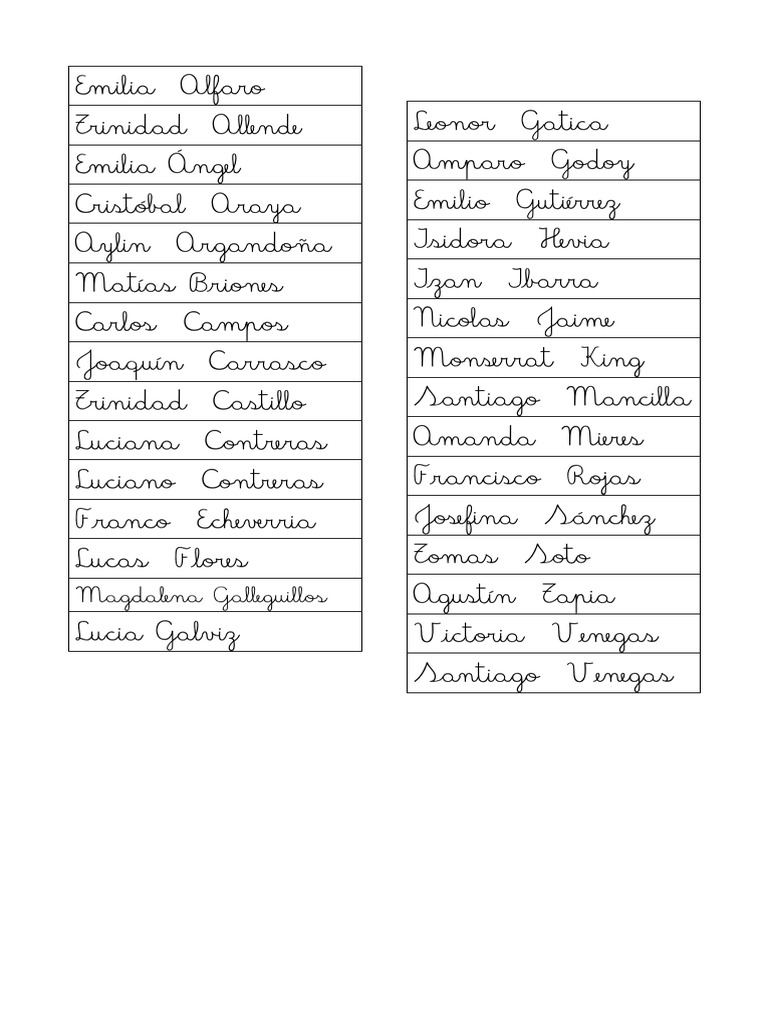 Emilia Alfaro
Trinidad Allende
Emilia Ángel
Cristóbal Araya
Aylin Argandoña
Matías Briones
Carlos Campos
Joaquín Carrasco
Trinidad Castillo
Luciana Contreras
Luciano Contreras
Franco Echeverria
Lucas Flores
Magdalena Galleguillos
Lucia Galviz
Leonor Gatica
Amparo Godoy
Emilio Gutiérrez
Isidora Hevia
Izan Ibarra
Nicolas Jaime
Monserrat King
Santiago Mancilla
Amanda Mieres
Francisco Rojas
Josefina Sánchez
Tomas Soto
Agustín Tapia
Victoria Venegas
Santiago Venegas